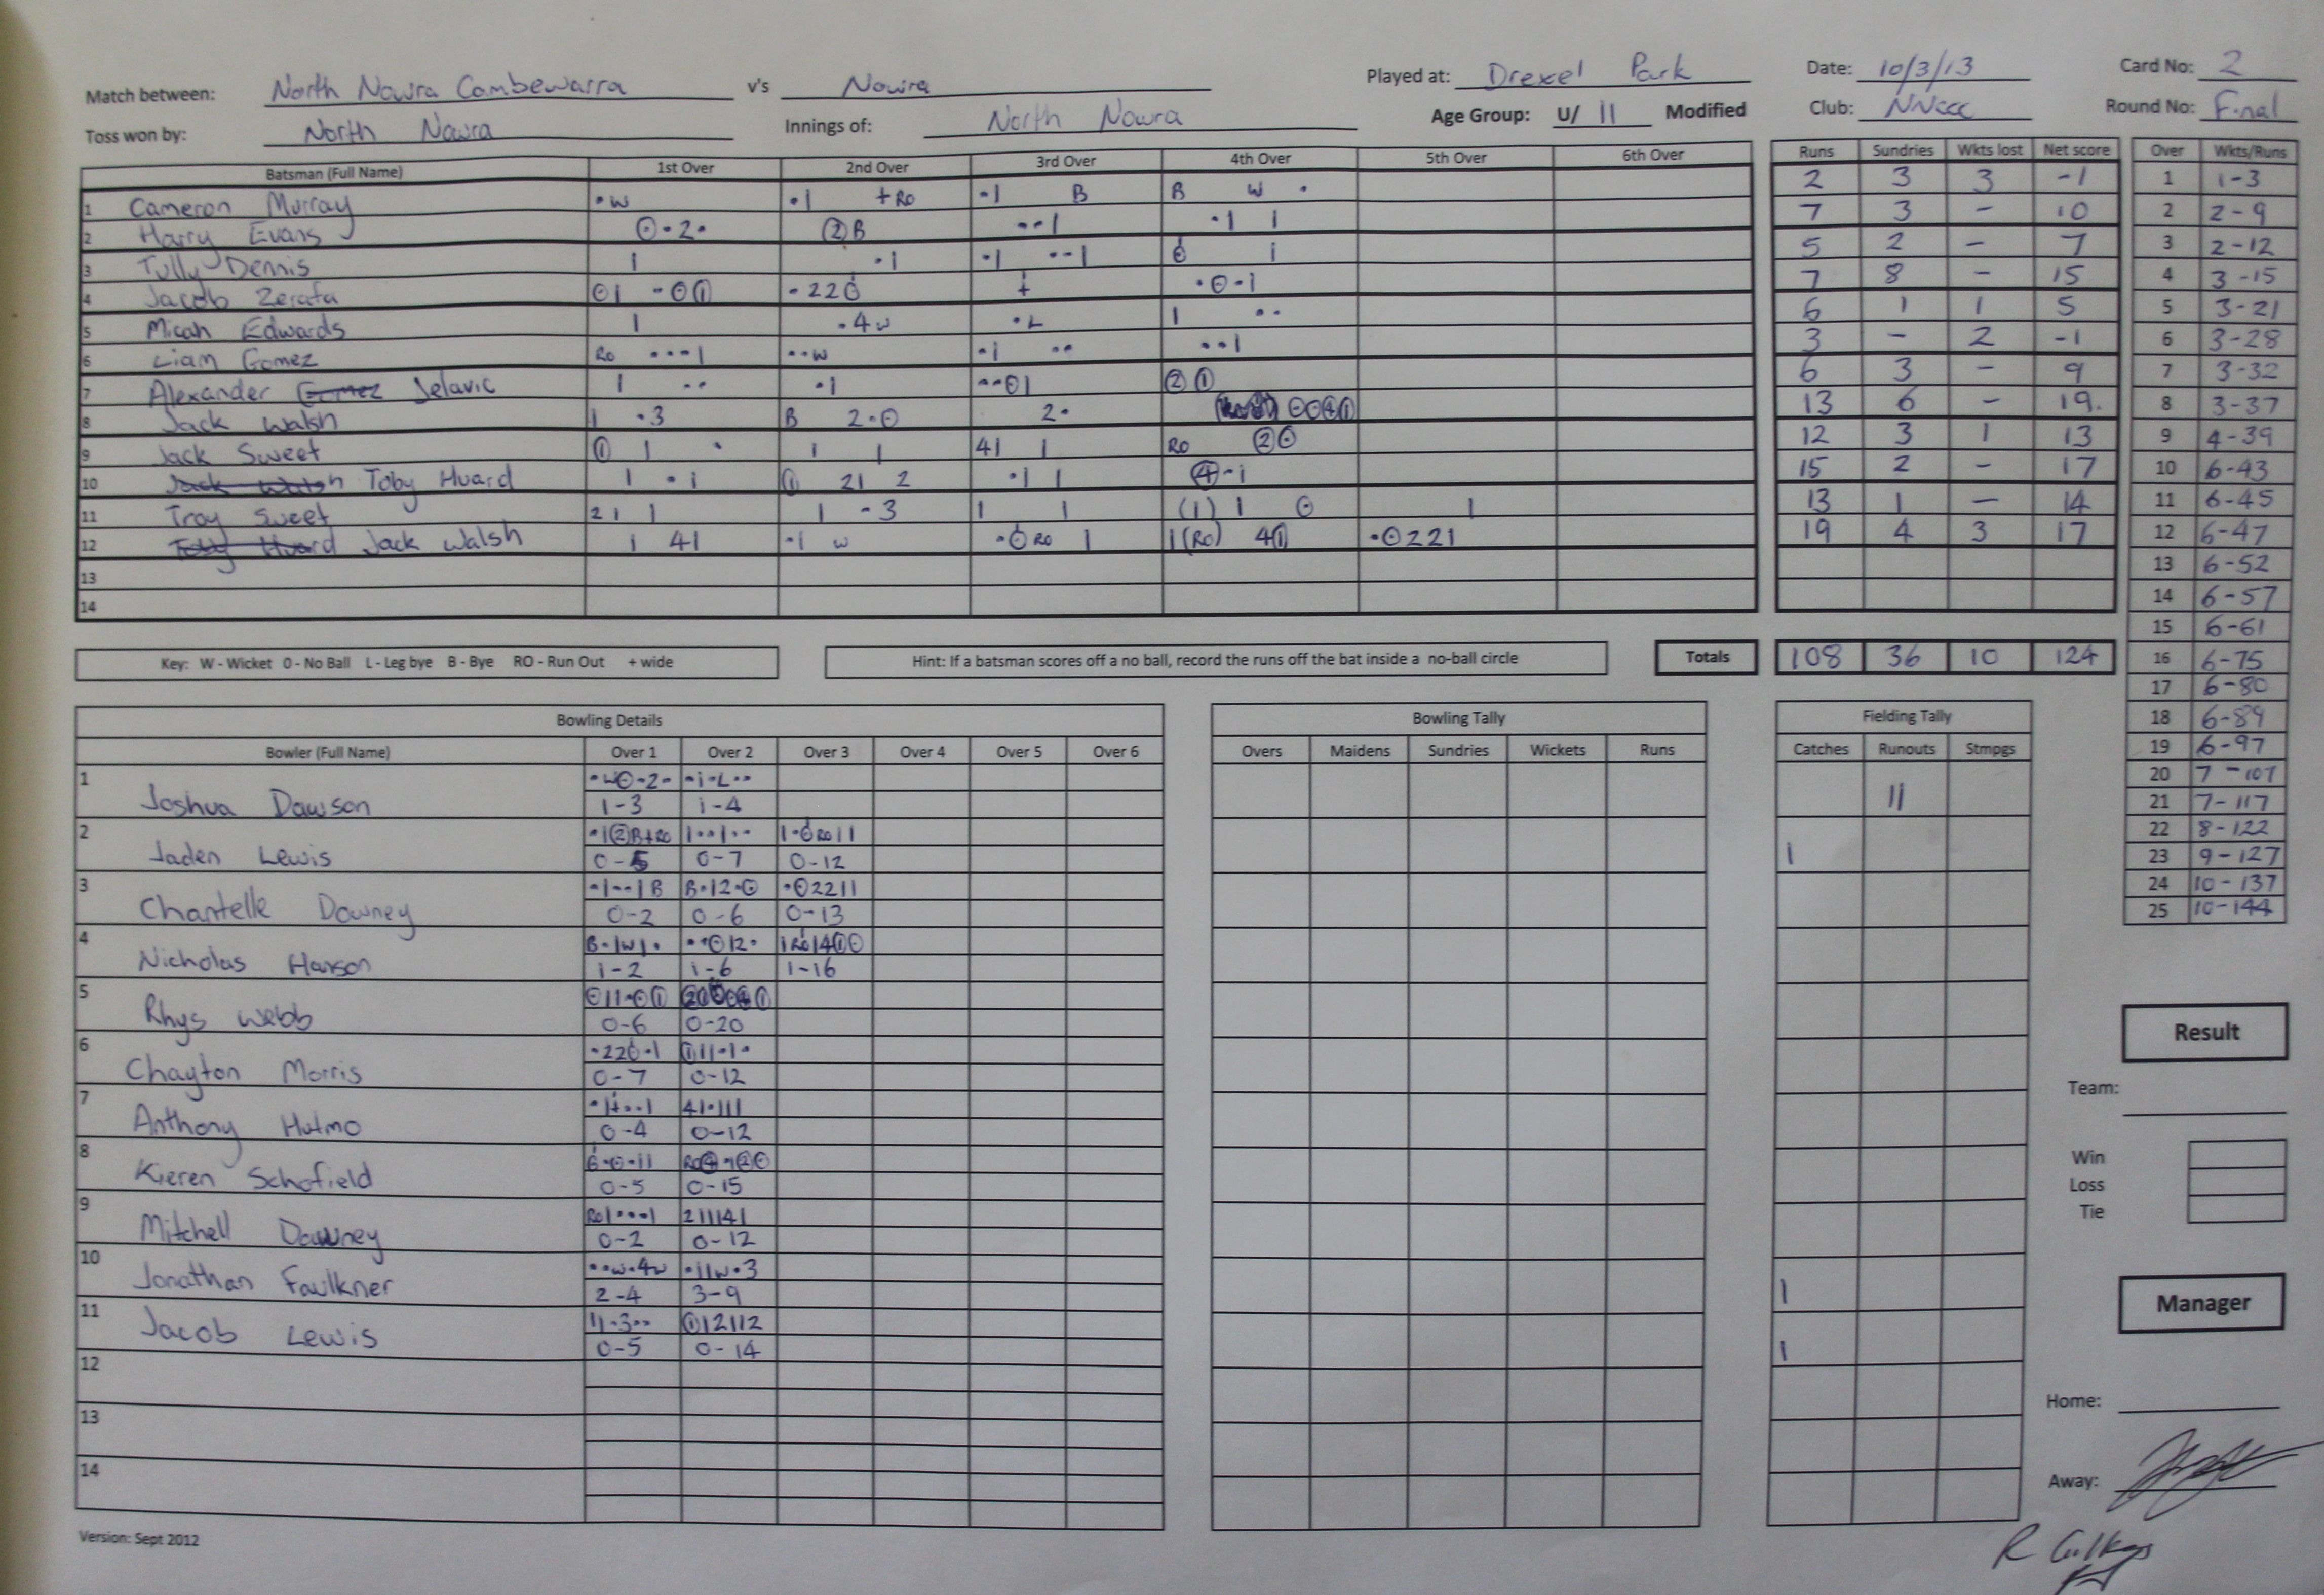 Match between: North Nowra Cambewarra v's Nowra Played at: Drexel Park Date: 10/3/13 Card No: 2
Toss won by: North Nowra Innings of: North Nowra Age Group: U/ 11 Modified Club: NNCCC Round No: Final
Batsman (Full Name) 1st Over 2nd Over 3rd Over 4th Over 5th Over 6th Over Runs Sundries Wkts lost Net score Over Wkts/Runs
1 Cameron Murray • W • 1 + RO • 1 B B W • 2 3 3 -1 1 1-3
2 Harry Evans ⊙ • 2 • ② B • • 1 • 1 1 7 3 - 10 2 2-9
3 Tully Dennis 1 • 1 • 1 • • 1 1 5 2 - 7 3 2-12
4 Jacob Zerafa ⊙ 1 • ⊙ ① • 2 2 • ⊙ • 1 7 8 - 15 4 3-15
5 Micah Edwards 1 • 4 W • L 1 • • 6 1 1 5 5 3-21
6 Liam Gomez RO • • • 1 • • W • 1 • • • • 1 3 - 2 -1 6 3-28
7 Alexander Jelavic 1 • • • 1 • • ⊙ 1 ② ① 6 3 - 9 7 3-32
8 Jack Walsh 1 • 3 B 2 • ⊙ 2 • ⊙ ⊙ ④ ① 13 6 - 19. 8 3-37
9 Jack Sweet ① 1 • 1 1 4 1 1 RO ② ⊙ 12 3 1 13 9 4-39
10 Jack Walsh Toby Huard 1 • 1 ① 2 1 2 • 1 1 ④ • 1 15 2 - 17 10 6-43
11 Troy Sweet 2 1 1 1 • 3 1 1 (1) 1 ⊙ 1 13 1 - 14 11 6-45
12 Toby Huard Jack Walsh 1 4 1 • 1 W • RO 1 1 (RO) 4 ① • ⊙ 2 2 1 19 4 3 17 12 6-47
13 13 6-52
14 14 6-57
15 6-61
Key: W - Wicket 0 - No Ball L - Leg bye B - Bye RO - Run Out + wide Hint: If a batsman scores off a no ball, record the runs off the bat inside a no-ball circle Totals 108 36 10 124 16 6-75
17 6-80
Bowling Details Bowling Tally Fielding Tally 18 6-89
Bowler (Full Name) Over 1 Over 2 Over 3 Over 4 Over 5 Over 6 Overs Maidens Sundries Wickets Runs Catches Runouts Stmpgs 19 6-97
20 7-107
21 7-117
22 8-122
23 9-127
24 10-137
25 10-144
1 • W ⊙ • 2 • • 1 • L • •
Joshua Dawson 1-3 1-4 11
2 • 1 ② B + RO 1 • • 1 • •
Jaden Lewis 0-5 0-7 0-12 1
3 • 1 • • 1 B B • 1 2 • ⊙ • ⊙ 2 2 1 1
Chantelle Downey 0-2 0-6 0-13
4 B • 1 W 1 • • • ⊙ 1 2 • 1 RO 1 4 ① ⊙
Nicholas Hanson 1-2 1-6 1-16
5 ⊙ 1 1 • ⊙ ①
Rhys Webb 0-6 0-20
6 ① 1 1 • 1 •
Chayton Morris 0-7 0-12
7 4 1 • 1 1 1
Anthony Hulmo 0-4 0-12
8
Kieren Schofield 0-5 0-15
9 RO 1 • • • 1 2 1 1 1 4 1
Mitchell Downey 0-2 0-12
10 • • W • 4 W • 1 1 W • 3
Jonathan Faulkner 2-4 3-9 1
11 1 1 • 3 • • ① 1 2 1 1 2
Jacob Lewis 0-5 0-14 1
12
13
14
Result
Team:
Win
Loss
Tie
Manager
Home:
Away:
Version: Sept 2012